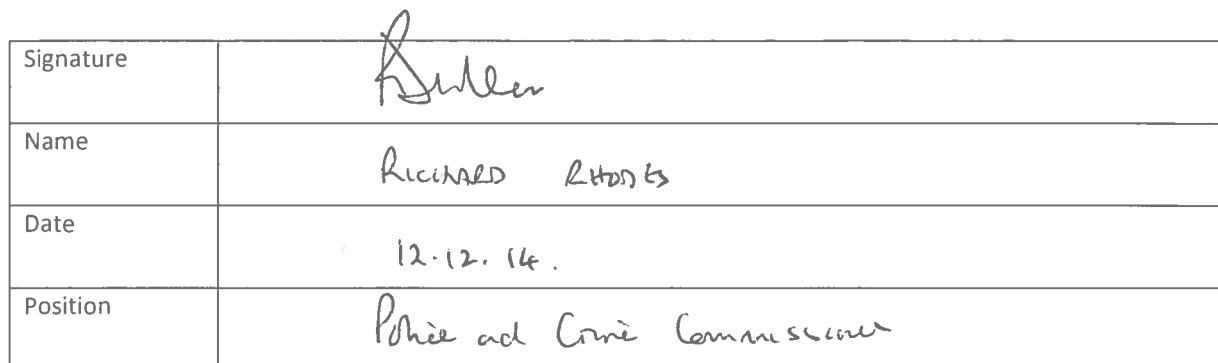 Signature
Name RICHARD RHODES
Date 12.12.14.
Position Police and Crime Commissioner